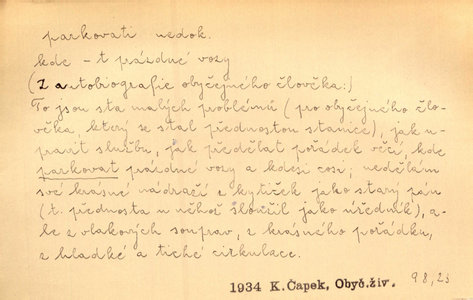 parkovati nedok.
kde – t prázdné vozy
(Z autobiografie obyčejného člověka:)
To jsou sta malých problémů (pro obyčejného člo-
věka, který se stal přednostou stanice), jak u-
pravit službu, jak předělat pořádek věcí, kde
parkovat prázdné vozy a kdesi cosi; nedělám
své krásné nádraží z kytiček jako starý pán
(t. přednosta u něhož sloužil jako úředník), a-
le z vlakových souprav, z krásného pořádku,
z hladké a tiché cirkulace.
1934 K.Čapek, Obyč.živ. 98,23